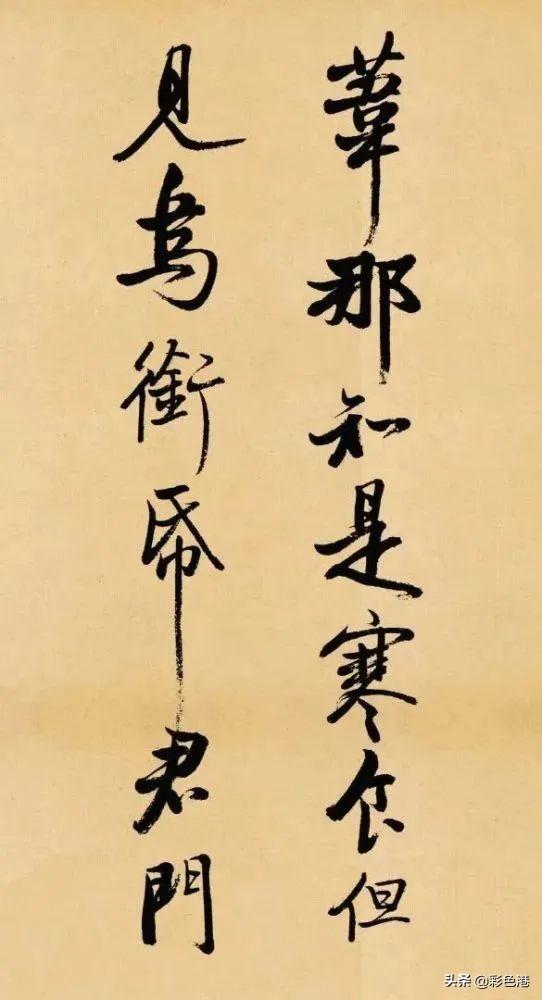 葦那知是寒食但
見烏銜帋君門
头条 @彩色港